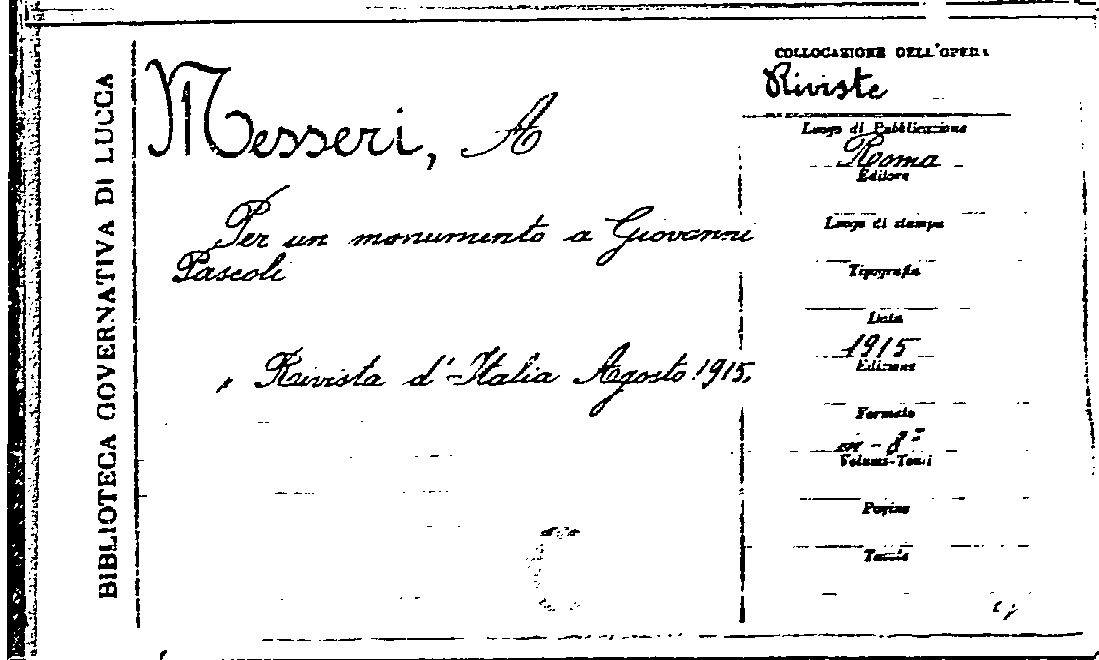 BIBLIOTECA GOVERNATIVA DI LUCCA
Messeri, A
Per un monumento a Giovanni
Pascoli
Rivista d'Italia Agosto 1915.
COLLOCAZIONE DELL'OPERA
Riviste
Luogo di Pubblicazione
Roma
Editore
Luogo di stampa
Tipografia
Data
1915
Edizione
Formato
in-8º
Volumi-Tomi
Pagine
Tavole
C